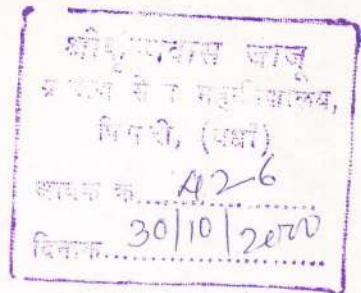 श्रीकृष्णदास जाजू
महाविद्यालय,
पिपरी, (वर्धा)
आवक क्र. A26
दिनांक 30/10/2000